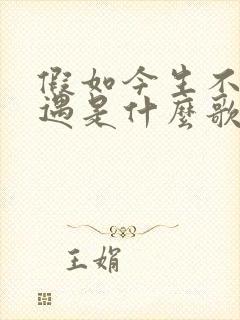 假如今生不
遇是什麼歌
王娟